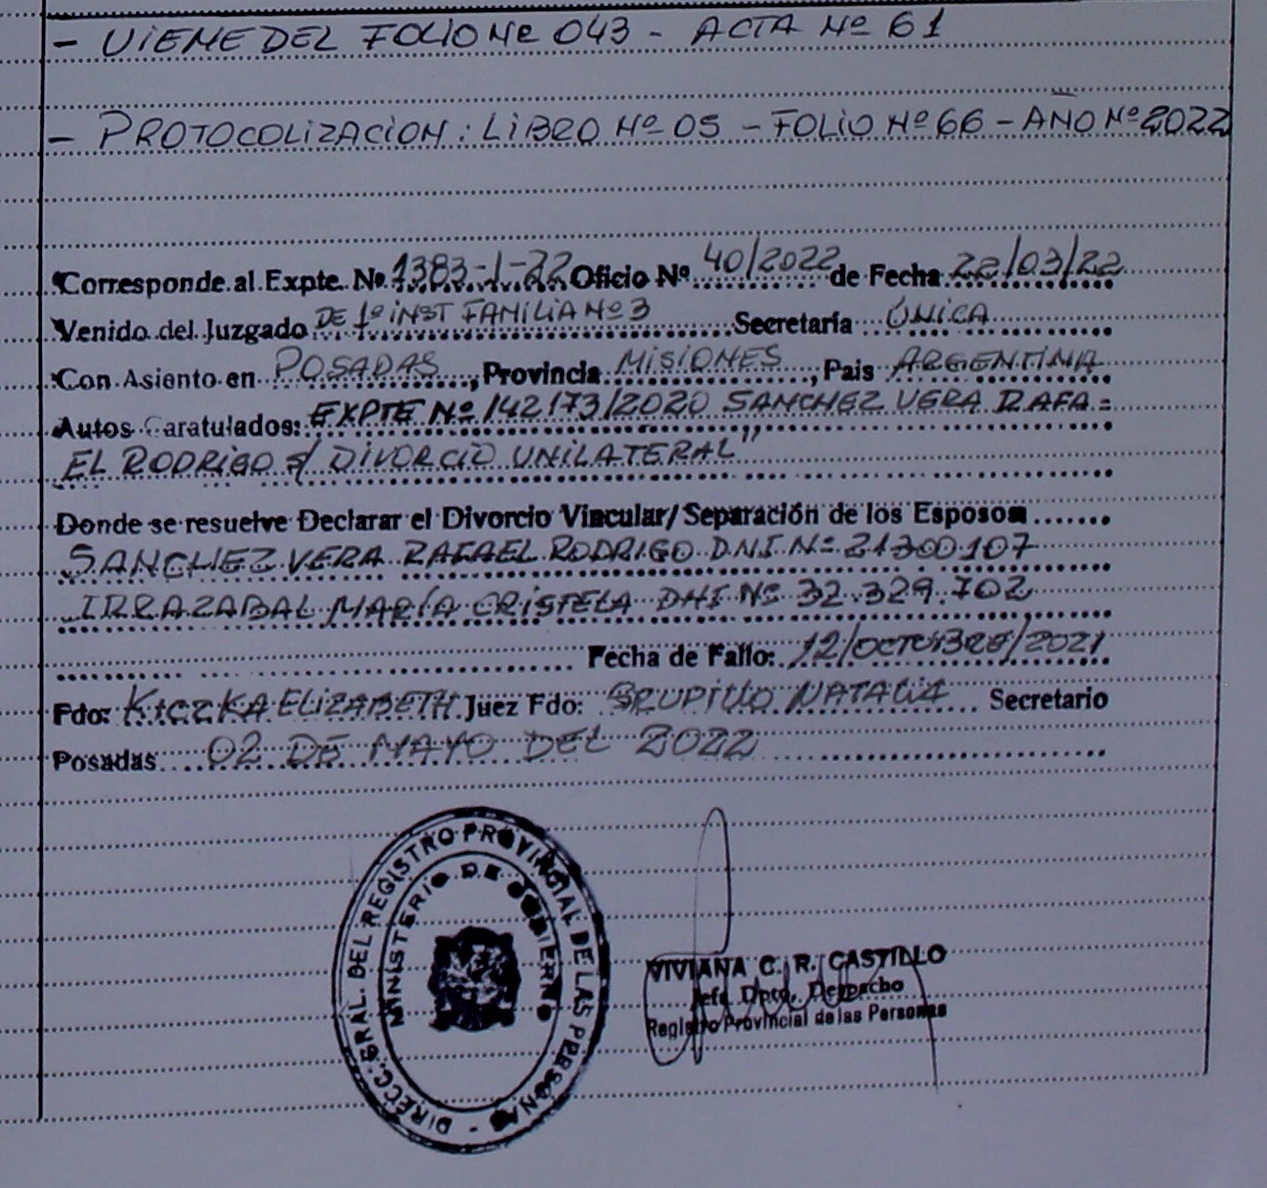 - VIENE DEL FOLIO Nº 043 - ACTA Nº 61
- PROTOCOLIZACION: LIBRO Nº 05 - FOLIO Nº 66 - AÑO Nº 2022
Corresponde al Expte. Nº 1383-I-22 Oficio Nº 40/2022 de Fecha 22/03/22
Venido del Juzgado DE 1º INST FAMILIA Nº 3 Secretaría ÚNICA
Con Asiento en POSADAS, Provincia MISIONES, Pais ARGENTINA
Autos Caratulados: EXPTE Nº 142173/2020 SANCHEZ VERA RAFA=
EL RODRIGO s/ DIVORCIO UNILATERAL"
Donde se resuelve Declarar el Divorcio Vincular/Separación de los Esposos
SANCHEZ VERA RAFAEL RODRIGO D.N.I Nº 21300107
IRRAZABAL MARÍA CRISTELA DNI Nº 32.329.702
Fecha de Fallo: 12/OCTUBRE/2021
Fdo: KICZKA ELIZABETH Juez Fdo: GRUPILLO NATALIA Secretario
Posadas 02 DE MAYO DEL 2022
DIRECC. GRAL. DEL REGISTRO PROVINCIAL DE LAS PERSONAS -
MINISTERIO DE GOBIERNO
VIVIANA C. R. CASTILLO
Jefa Dpto. Despacho
Registro Provincial de las Personas